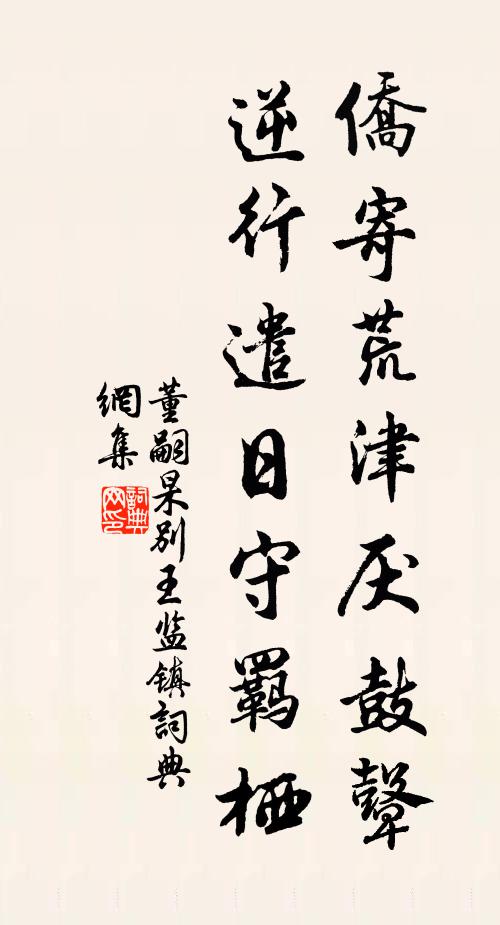 僑寄荒津厌鼓鼙
逆行遣日守羈栖
董嗣杲别王监鎮詞典
網集
詞典
网印